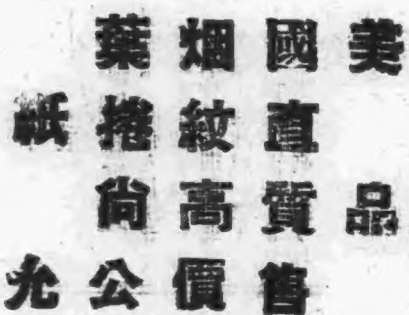 美國烟葉
直紋捲紙
品質高尚
售價公允